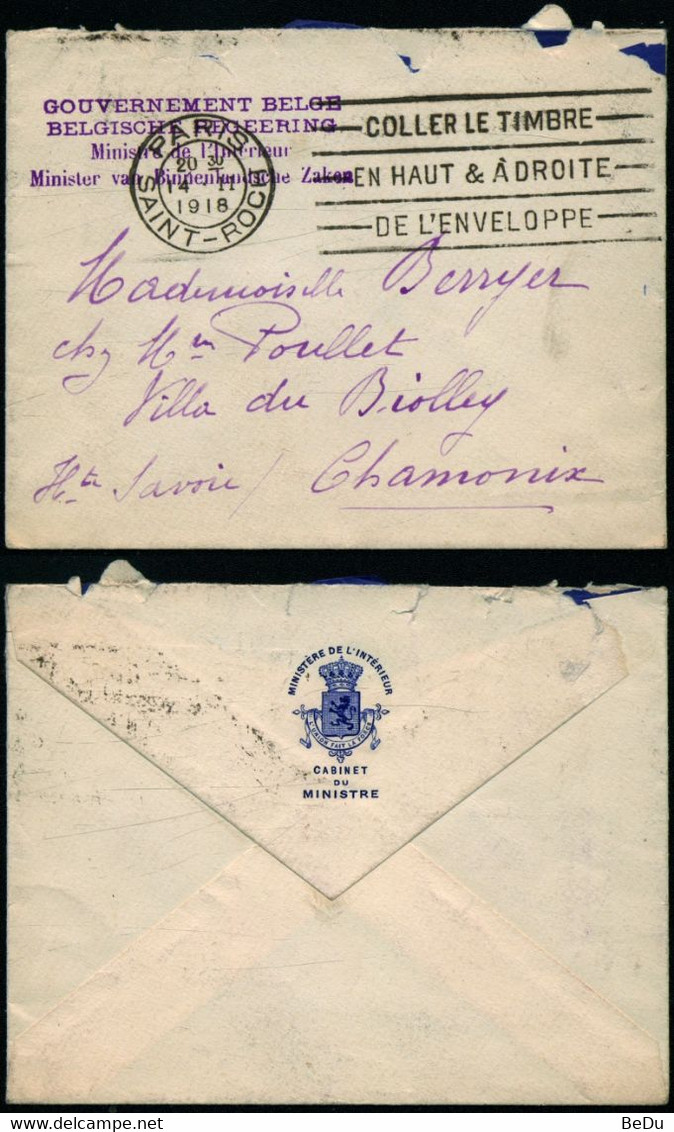 GOUVERNEMENT BELGE
BELGISCHE REGEERING
Ministre de l'Intérieur
Minister van Binnenlandsche Zaken
PARIS
20 30
4 - II
1918
SAINT-ROCH
COLLER LE TIMBRE
EN HAUT & À DROITE
DE L'ENVELOPPE
Mademoiselle Berryer
chez Mm Poullet
Villa du Biolley
Hte Savoie / Chamonix
MINISTÈRE DE L'INTÉRIEUR
L'UNION FAIT LA FORCE
CABINET
DU
MINISTRE
delcampe.net
BeDu